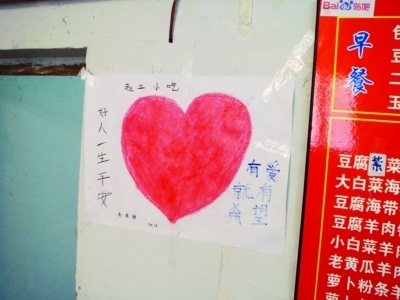 赵二小吃
好人一生平安
有爱
就有
希望
Bai du 贴吧
早餐
豆腐茶菜
大白菜海
豆腐海带
豆腐羊肉
小白菜羊肉
老黄瓜羊肉
萝卜粉条羊